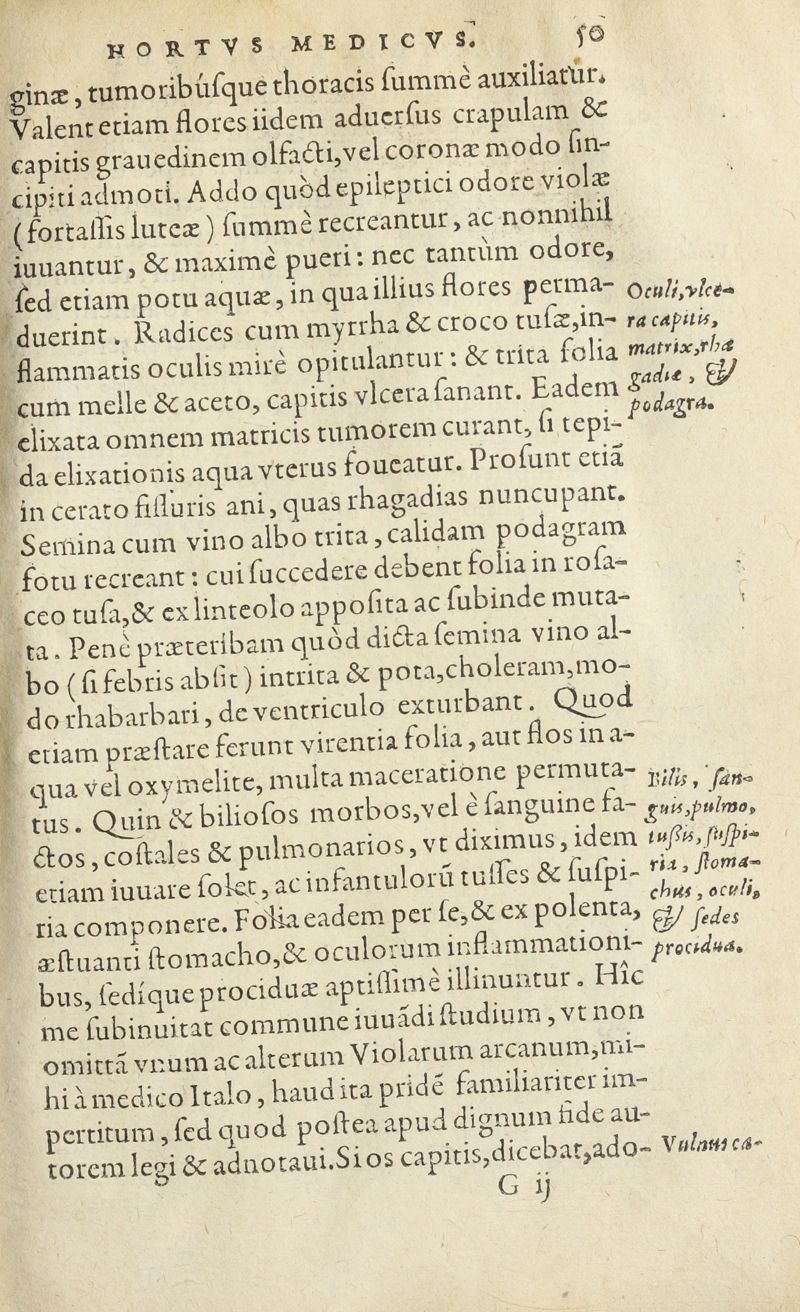 HORTVS MEDICVS. 50
ginæ, tumoribúſque thoracis ſummè auxiliatur.
Valent etiam flores iidem aduerſus crapulam &
capitis grauedinem olfacti, vel coronæ modo ſin-
cipiti admoti. Addo quòd epileptici odore violæ
(fortaſſis luteæ) ſummè recreantur, ac nonnihil
iuuantur, & maximè pueri: nec tantùm odore,
ſed etiam potu aquæ, in qua illius flores perma-
duerint. Radices cum myrrha & croco tuſæ, in-
flammatis oculis mirè opitulantur: & trita folia
cum melle & aceto, capitis vlcera ſanant. Eadem
elixata omnem matricis tumorem curant, ſi tepi-
da elixationis aqua vterus foueatur. Proſunt etiā
in cerato fiſſuris ani, quas rhagadias nuncupant.
Semina cum vino albo trita, calidam podagram
fotu recreant: cui ſuccedere debent folia in roſa-
ceo tuſa, & ex linteolo appoſita ac ſubinde muta-
ta. Penè præteribam quòd dicta ſemina vino al-
bo (ſi febris abſit) intrita & pota, choleram, mo-
do rhabarbari, de ventriculo exturbant. Quod
etiam præſtare ferunt virentia folia, aut flos in a-
qua vel oxymelite, multa maceratione permuta-
tus. Quin & bilioſos morbos, vel è ſanguine fa-
ctos, coſtales & pulmonarios, vt diximus, idem
etiam iuuare ſolet, ac infantulorū tuſſes & ſuſpi-
ria componere. Folia eadem per ſe, & ex polenta,
æſtuanti ſtomacho, & oculorum inflammationi-
bus, ſedíque prociduæ aptiſſimè illinuntur. Hic
me ſubinuitat commune iuuādi ſtudium, vt non
omittā vnum ac alterum Violarum arcanum, mi-
hi à medico Italo, haud ita pridē familiariter im-
pertitum, ſed quod poſtea apud dignum fide au-
torem legi & adnotaui. Si os capitis, dicebat, ado-
G ij
Oculi, vlce-
ra capitis,
matrix, rha
gadiæ, &
podagra.
Bilis, ſan-
guis, pulmo,
tußis, ſuſpi-
ria, ſtoma-
chus, oculi,
& ſedes
procidua.
Vulnus ca-